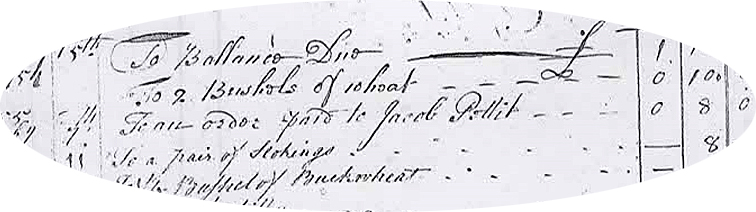 15th To Ballance Due £ 1
To 2 Bushels of wheat 0 10 0
To an order paid to Jacob Pettit 0 8 0
11 To a pair of Stokings 8
Bushel of Buckwheat